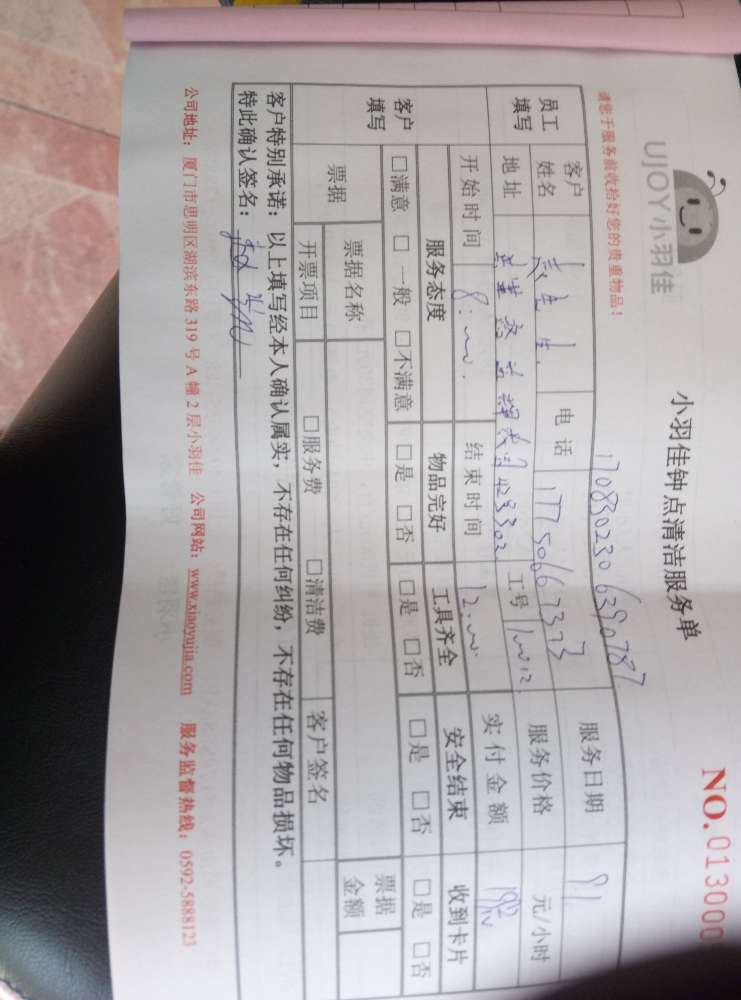 UJOY小羽佳
小羽佳钟点清洁服务单
NO.013000
请您于服务前收拾好您的贵重物品!
1708302306390787
员工填写
客户姓名 电话 17750667373 服务日期 9.1
地址 4#3302 工号 服务价格 元/小时
开始时间 8:00. 结束时间 12:00. 实付金额 192
客户填写
服务态度 物品完好 工具齐全 安全结束 收到卡片
□满意 □一般 □不满意 □是 □否 □是 □否 □是 □否 □是 □否
票据 票据名称 票据金额
开票项目 □服务费 □清洁费 客户签名
客户特别承诺:以上填写经本人确认属实,不存在任何纠纷,不存在任何物品损坏。
特此确认签名:
公司地址:厦门市思明区湖滨东路319号A幢2层小羽佳 公司网站:www.xiaoyujia.com 服务监督热线:0592-5888123